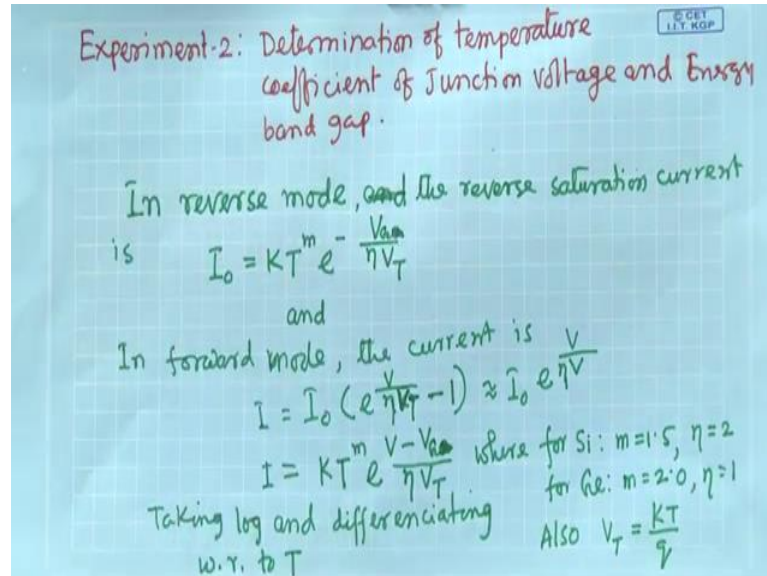 © CET
I.I.T. KGP
Experiment-2: Determination of temperature
coefficient of Junction voltage and Energy
band gap.
In reverse mode, and the reverse saturation current
is I₀ = KT^m e^-(V_G0/ηV_T)
and
In forward mode, the current is
I = I₀ (e^(V/ηV_T) - 1) ≈ I₀ e^(V/ηV)
I = KT^m e^((V-V_G0)/ηV_T) where for Si: m=1.5, η=2
for Ge: m=2.0, η=1
Taking log and differenciating
w.r. to T
Also V_T = KT/q